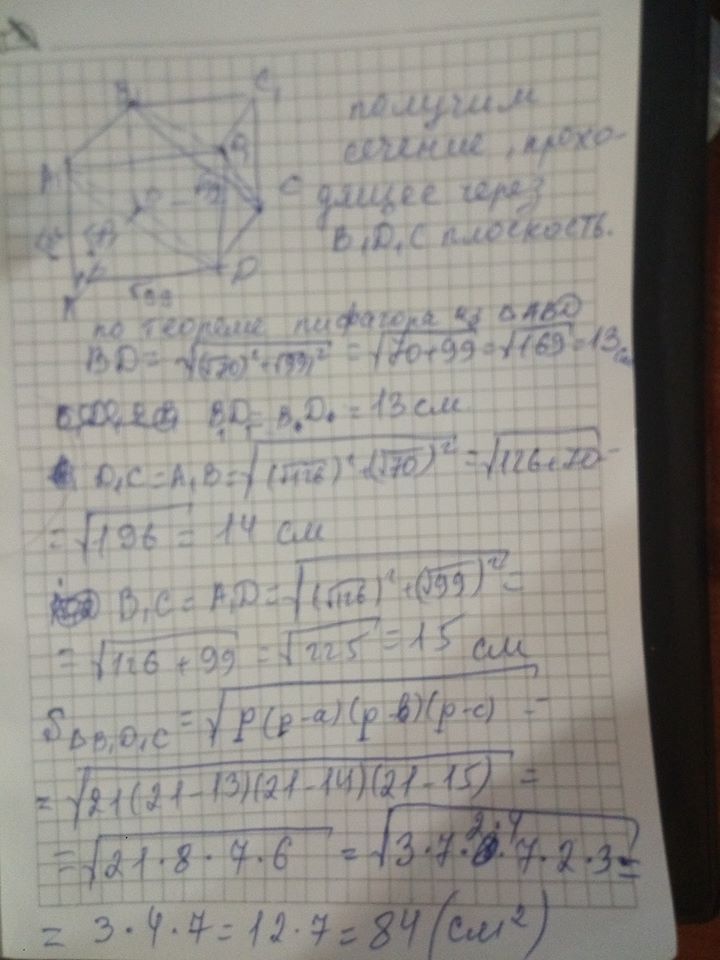 B₁ C₁
получим
A₁ D₁
сечение, прохо-
C
дящее через
B₁D₁C плоскость.
D
√99
по теореме пифагора из ΔABD
BD = √(√70)² + (√99)² = √70+99 = √169 = 13 см
BD = B₁D₁ = 13 см
D₁C = A₁B = √(√126)² + (√70)² = √126+70 =
= √196 = 14 см
B₁C = A₁D = √(√126)² + (√99)² =
= √126 + 99 = √225 = 15 см
S ΔB₁D₁C = √p(p-a)(p-b)(p-c) =
= √21(21-13)(21-14)(21-15) =
= √21·8·7·6 = √3·7·2·4·7·2·3 =
= 3·4·7 = 12·7 = 84 (см²)